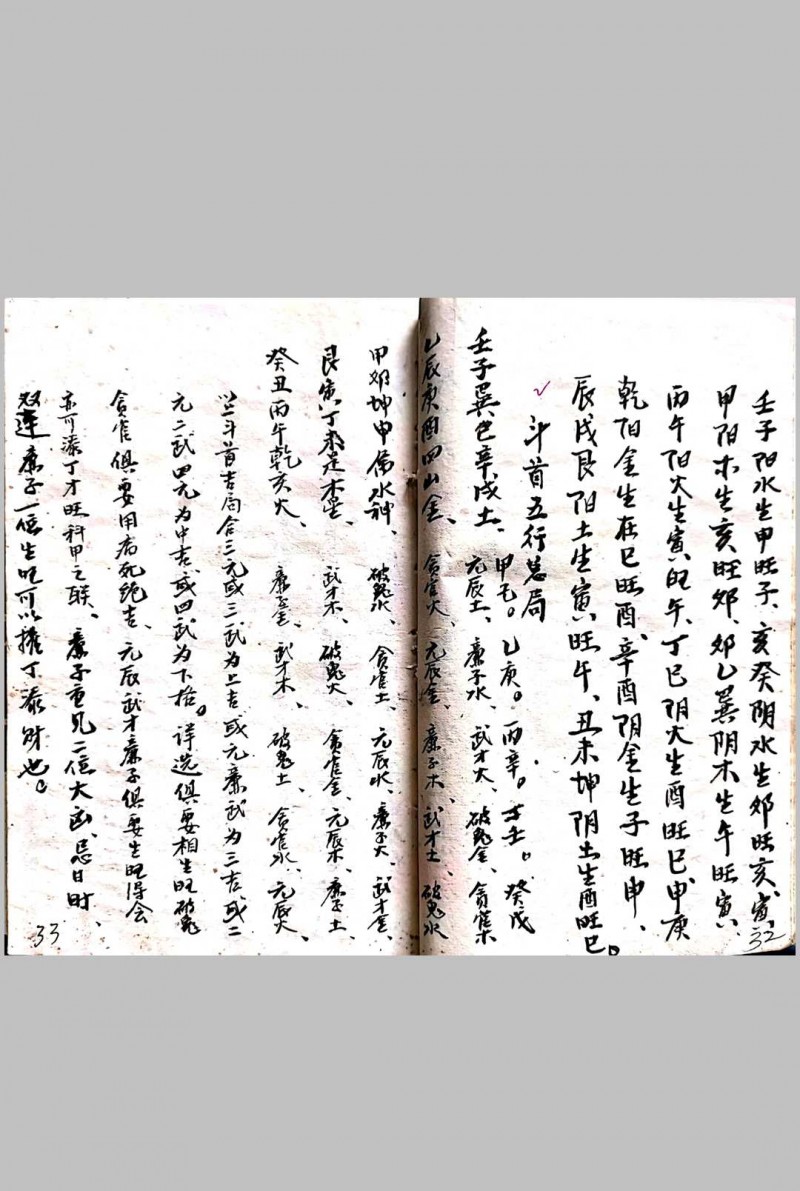 壬子阳水生申旺子、亥癸阴水生卯旺亥、寅
甲阳木生亥旺卯、卯乙巽阴木生午旺寅、
丙午阳火生寅旺午、丁巳阴火生酉旺巳、申庚
乾阳金生在巳旺酉、辛酉阴金生子旺申、
辰戌艮阳土生寅旺午、丑未坤阴土生酉旺巳。
32
斗首五行总局
甲己。乙庚。丙辛。丁壬。癸戊
壬子巽巳辛戌土、元辰土、廉子水、武才火、破鬼金、贪官木
乙辰庚酉四山金、贪官火、元辰金、廉子木、武才土、破鬼水
甲卯坤申属水神、破鬼水、贪官土、元辰水、廉子火、武才金、
艮寅丁未是木星、武才木、破鬼火、贪官金、元辰木、廉子土、
癸丑丙午乾亥火、廉子金、武才木、破鬼土、贪官水、元辰火、
以斗首吉局合三元或三武为上吉或元廉武为三吉或二
元二武四元为中吉或四武为下格。详选俱要相生旺破鬼
贪官俱要用病死绝吉、元辰武才廉子俱要生旺得会
亦可添丁才旺科甲之联、廉子重见二位大凶、忌日时、
双连廉子一位生旺可以擁丁添财也。
33